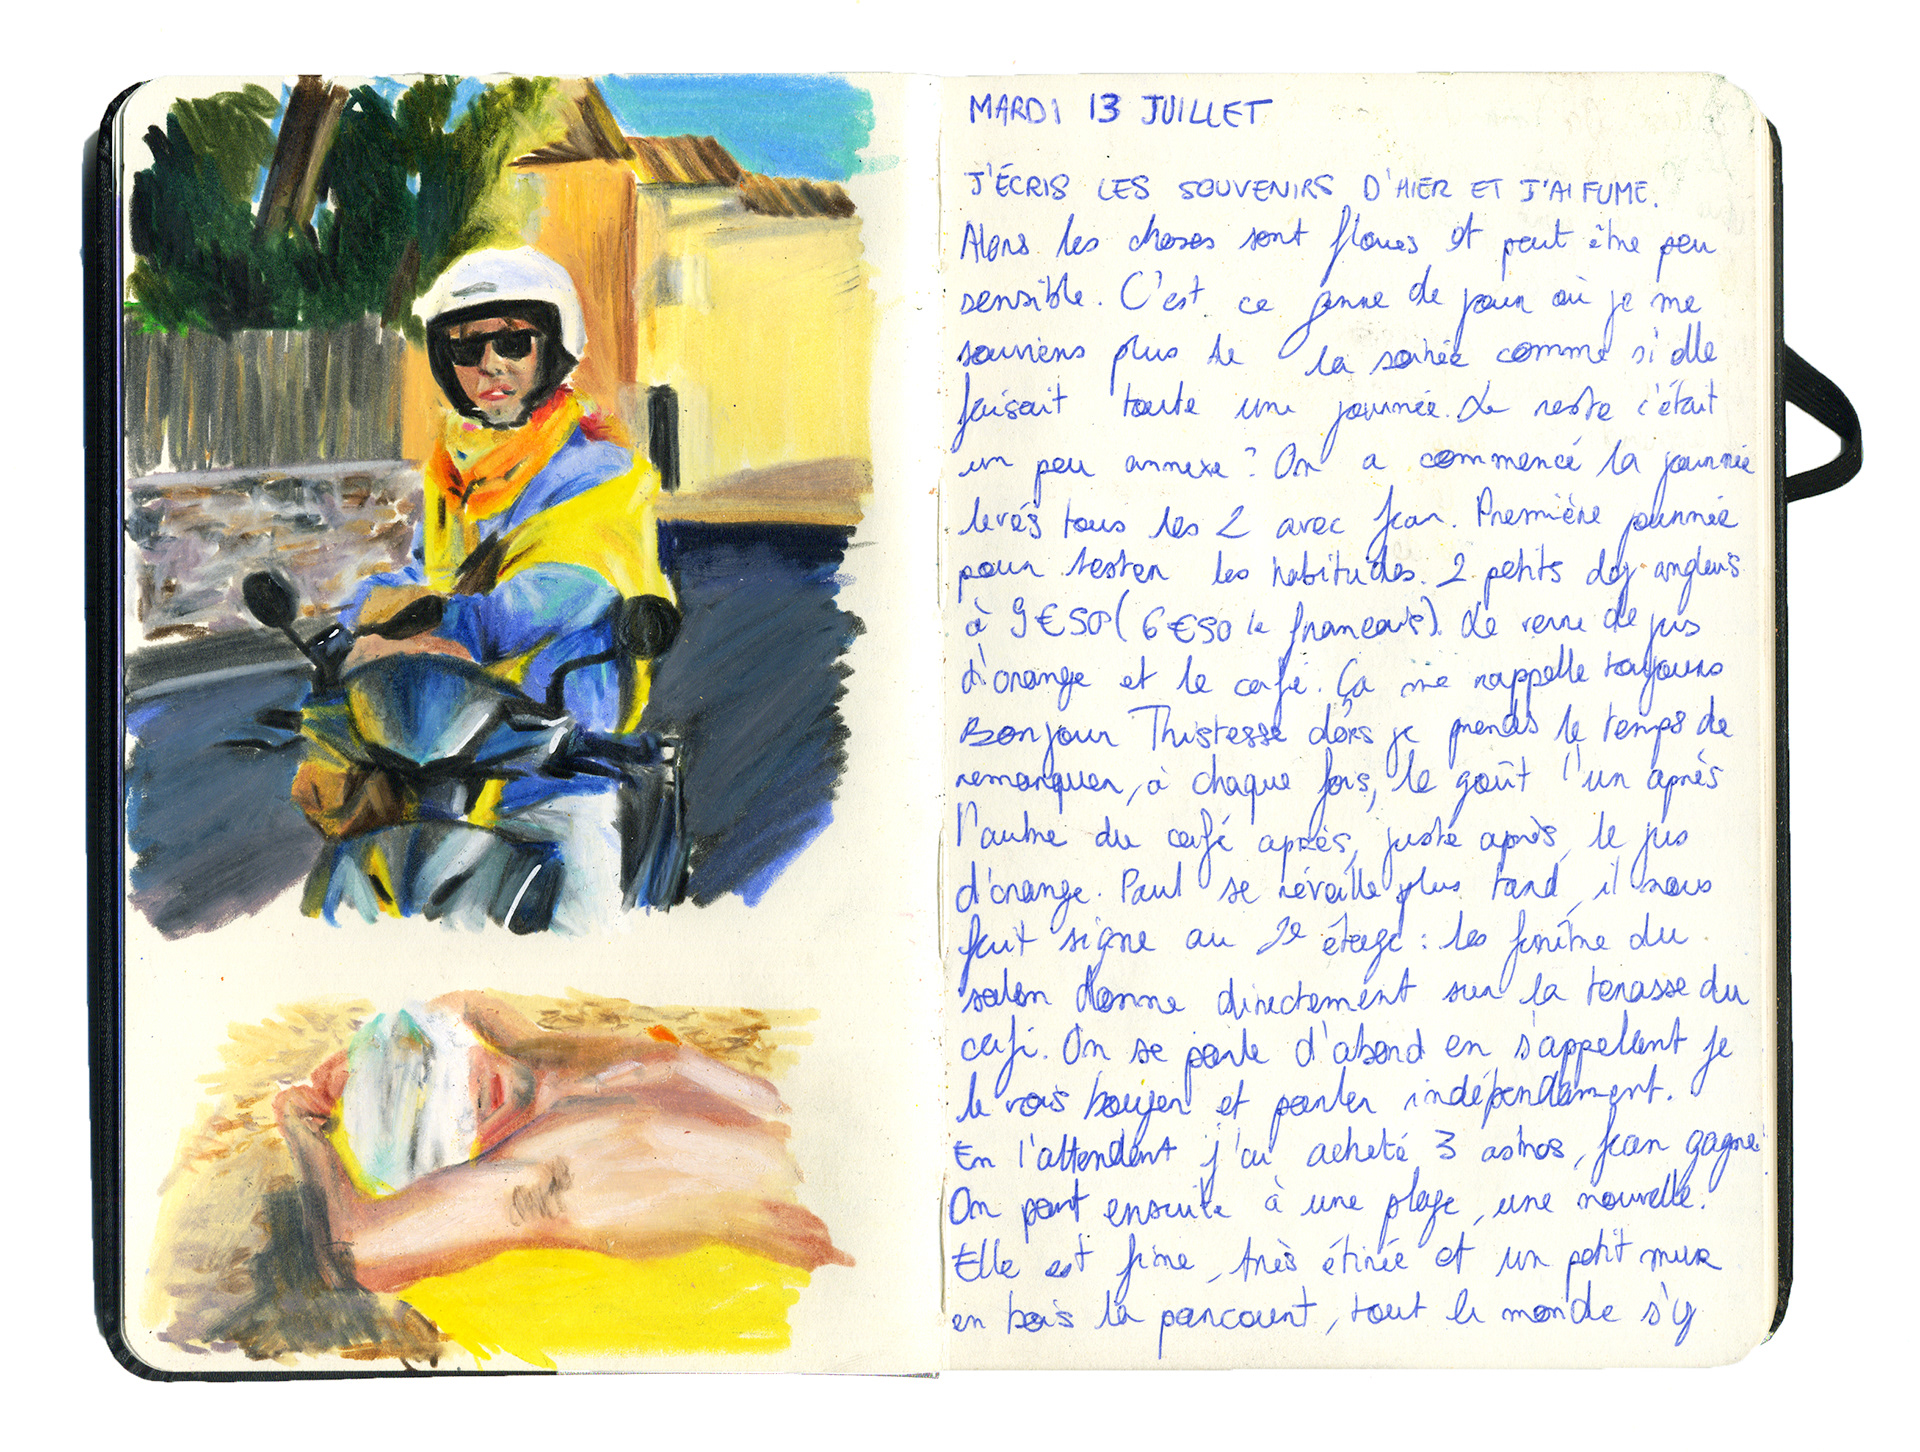 MARDI 13 JUILLET
J'ÉCRIS LES SOUVENIRS D'HIER ET J'AI FUME.
Alors les choses sont floues et peut être peu
sensible. C'est ce genre de jour où je me
souviens plus de la soirée comme si elle
faisait toute une journée. Le reste c'était
un peu annexe ? On a commencé la journée
levés tous les 2 avec Jean. Première journée
pour tester les habitudes. 2 petits dej anglais
à 9€50 (6€50 le français). Le verre de jus
d'orange et le café. Ça me rappelle toujours
Bonjour Thistesse dors je prends le temps de
remarquer, à chaque fois, le goût l'un après
l'autre du café après, juste après, le jus
d'orange. Paul se réveille plus tard, il nous
fait signe au 2e étage : les fenêtre du
salon donne directement sur la terasse du
café. On se parle d'abord en s'appelant je
le vois bouger et parler indépendament.
En l'attendent j'ai acheté 3 astros, Jean gagne.
On part ensuite à une plage, une nouvelle.
Elle est fine, très étirée et un petit mur
en bois la parcourt, tout le monde s'y